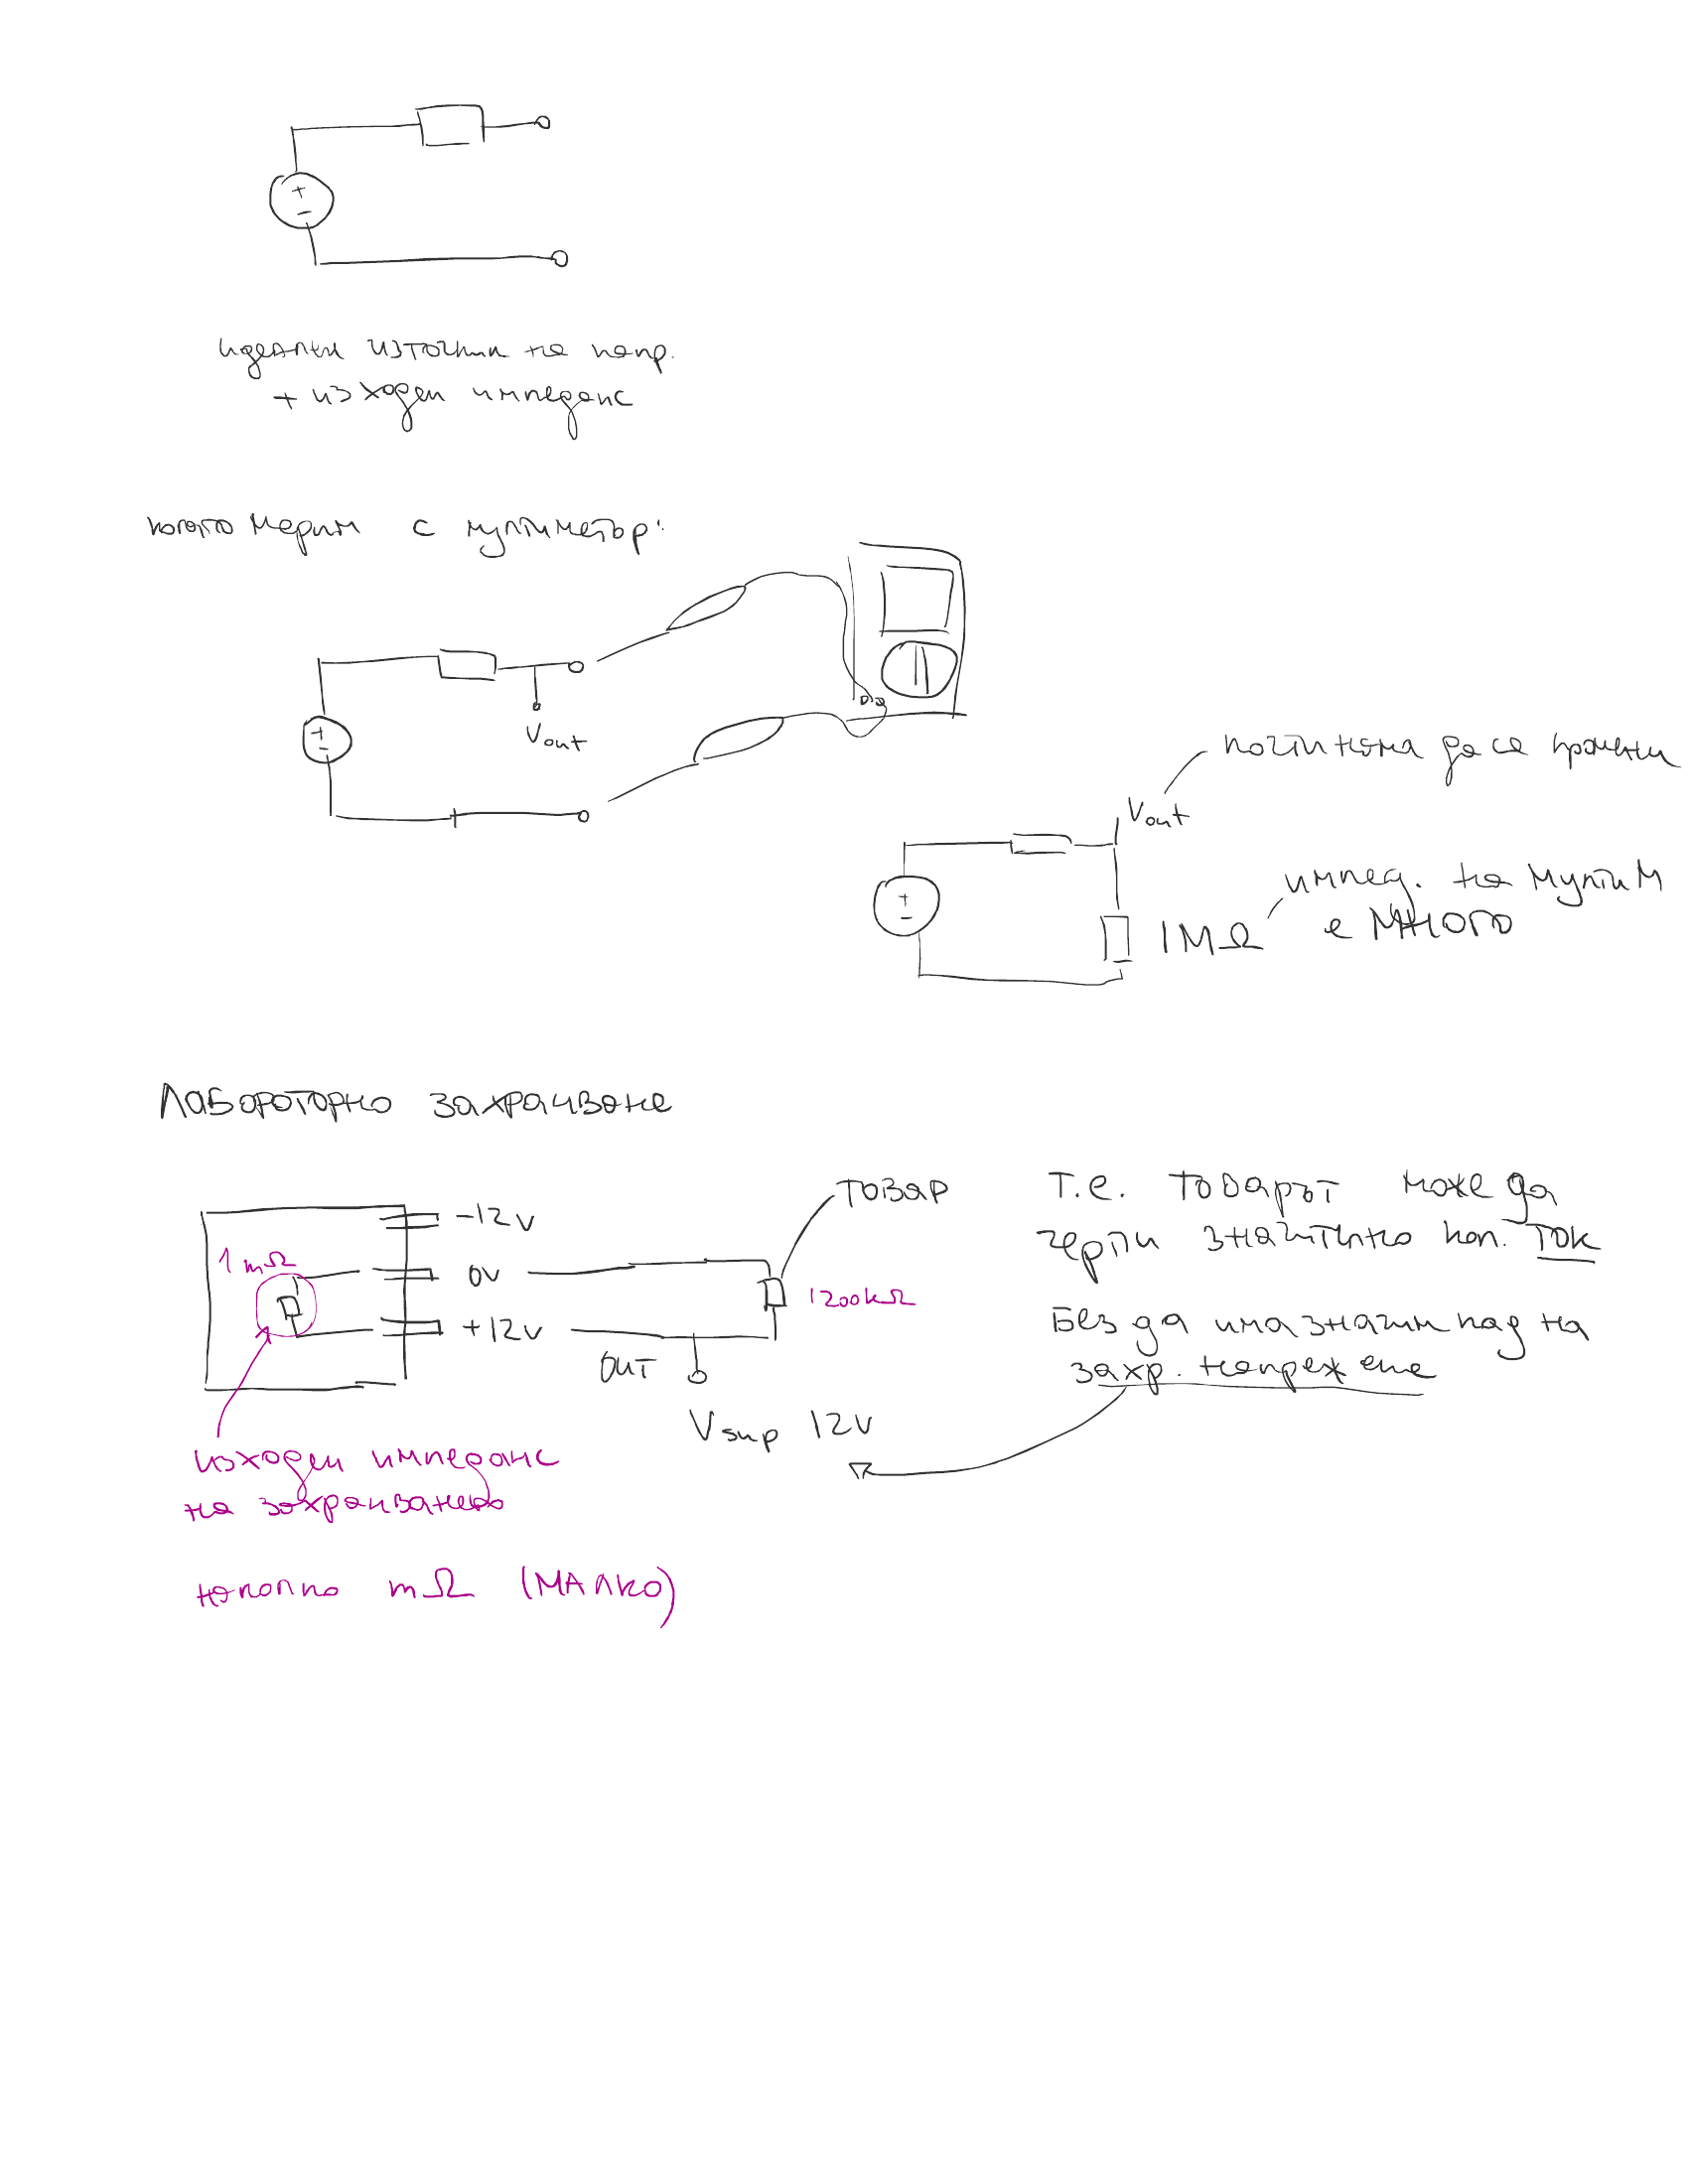 идеален източник на напр.
+ изходен импеданс
когато мерим с мултиметър:
+
-
Vout
почти няма да се промени
Vout
импед. на мултим
е МНОГО
1MΩ
Лабораторно захранване
-12V
0V
+12V
1mΩ
товар
1200kΩ
OUT
Vsup 12V
изходен импеданс
на захранването
няколко mΩ (МАЛКО)
Т.е. товарът може да
черпи значително кол. ток
Без да има значим пад на
захр. напрежение